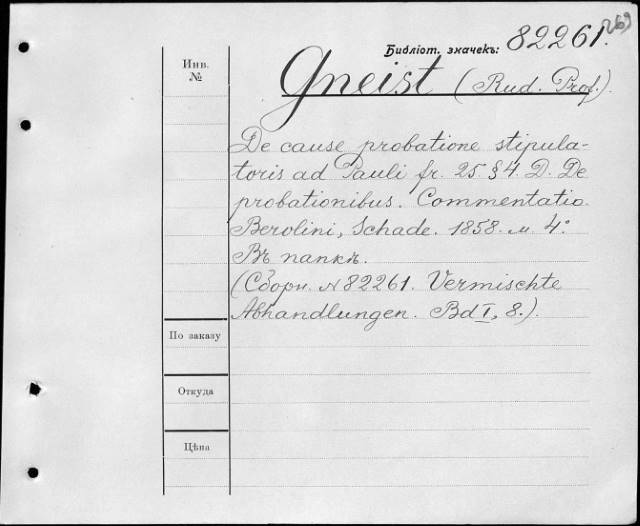 Библіот. значекъ: 82261.
269
Инв.
№
Gneist (Rud. Prof.).
De cause probatione stipula-
toris ad Pauli fr. 25. § 4. D. De
probationibus. Commentatio.
Berolini, Schade. 1858. м. 4º
Въ папкѣ.
(Сборн. N 82261. Vermischte
Abhandlungen. Bd I, 8.).
По заказу
Откуда
Цѣна